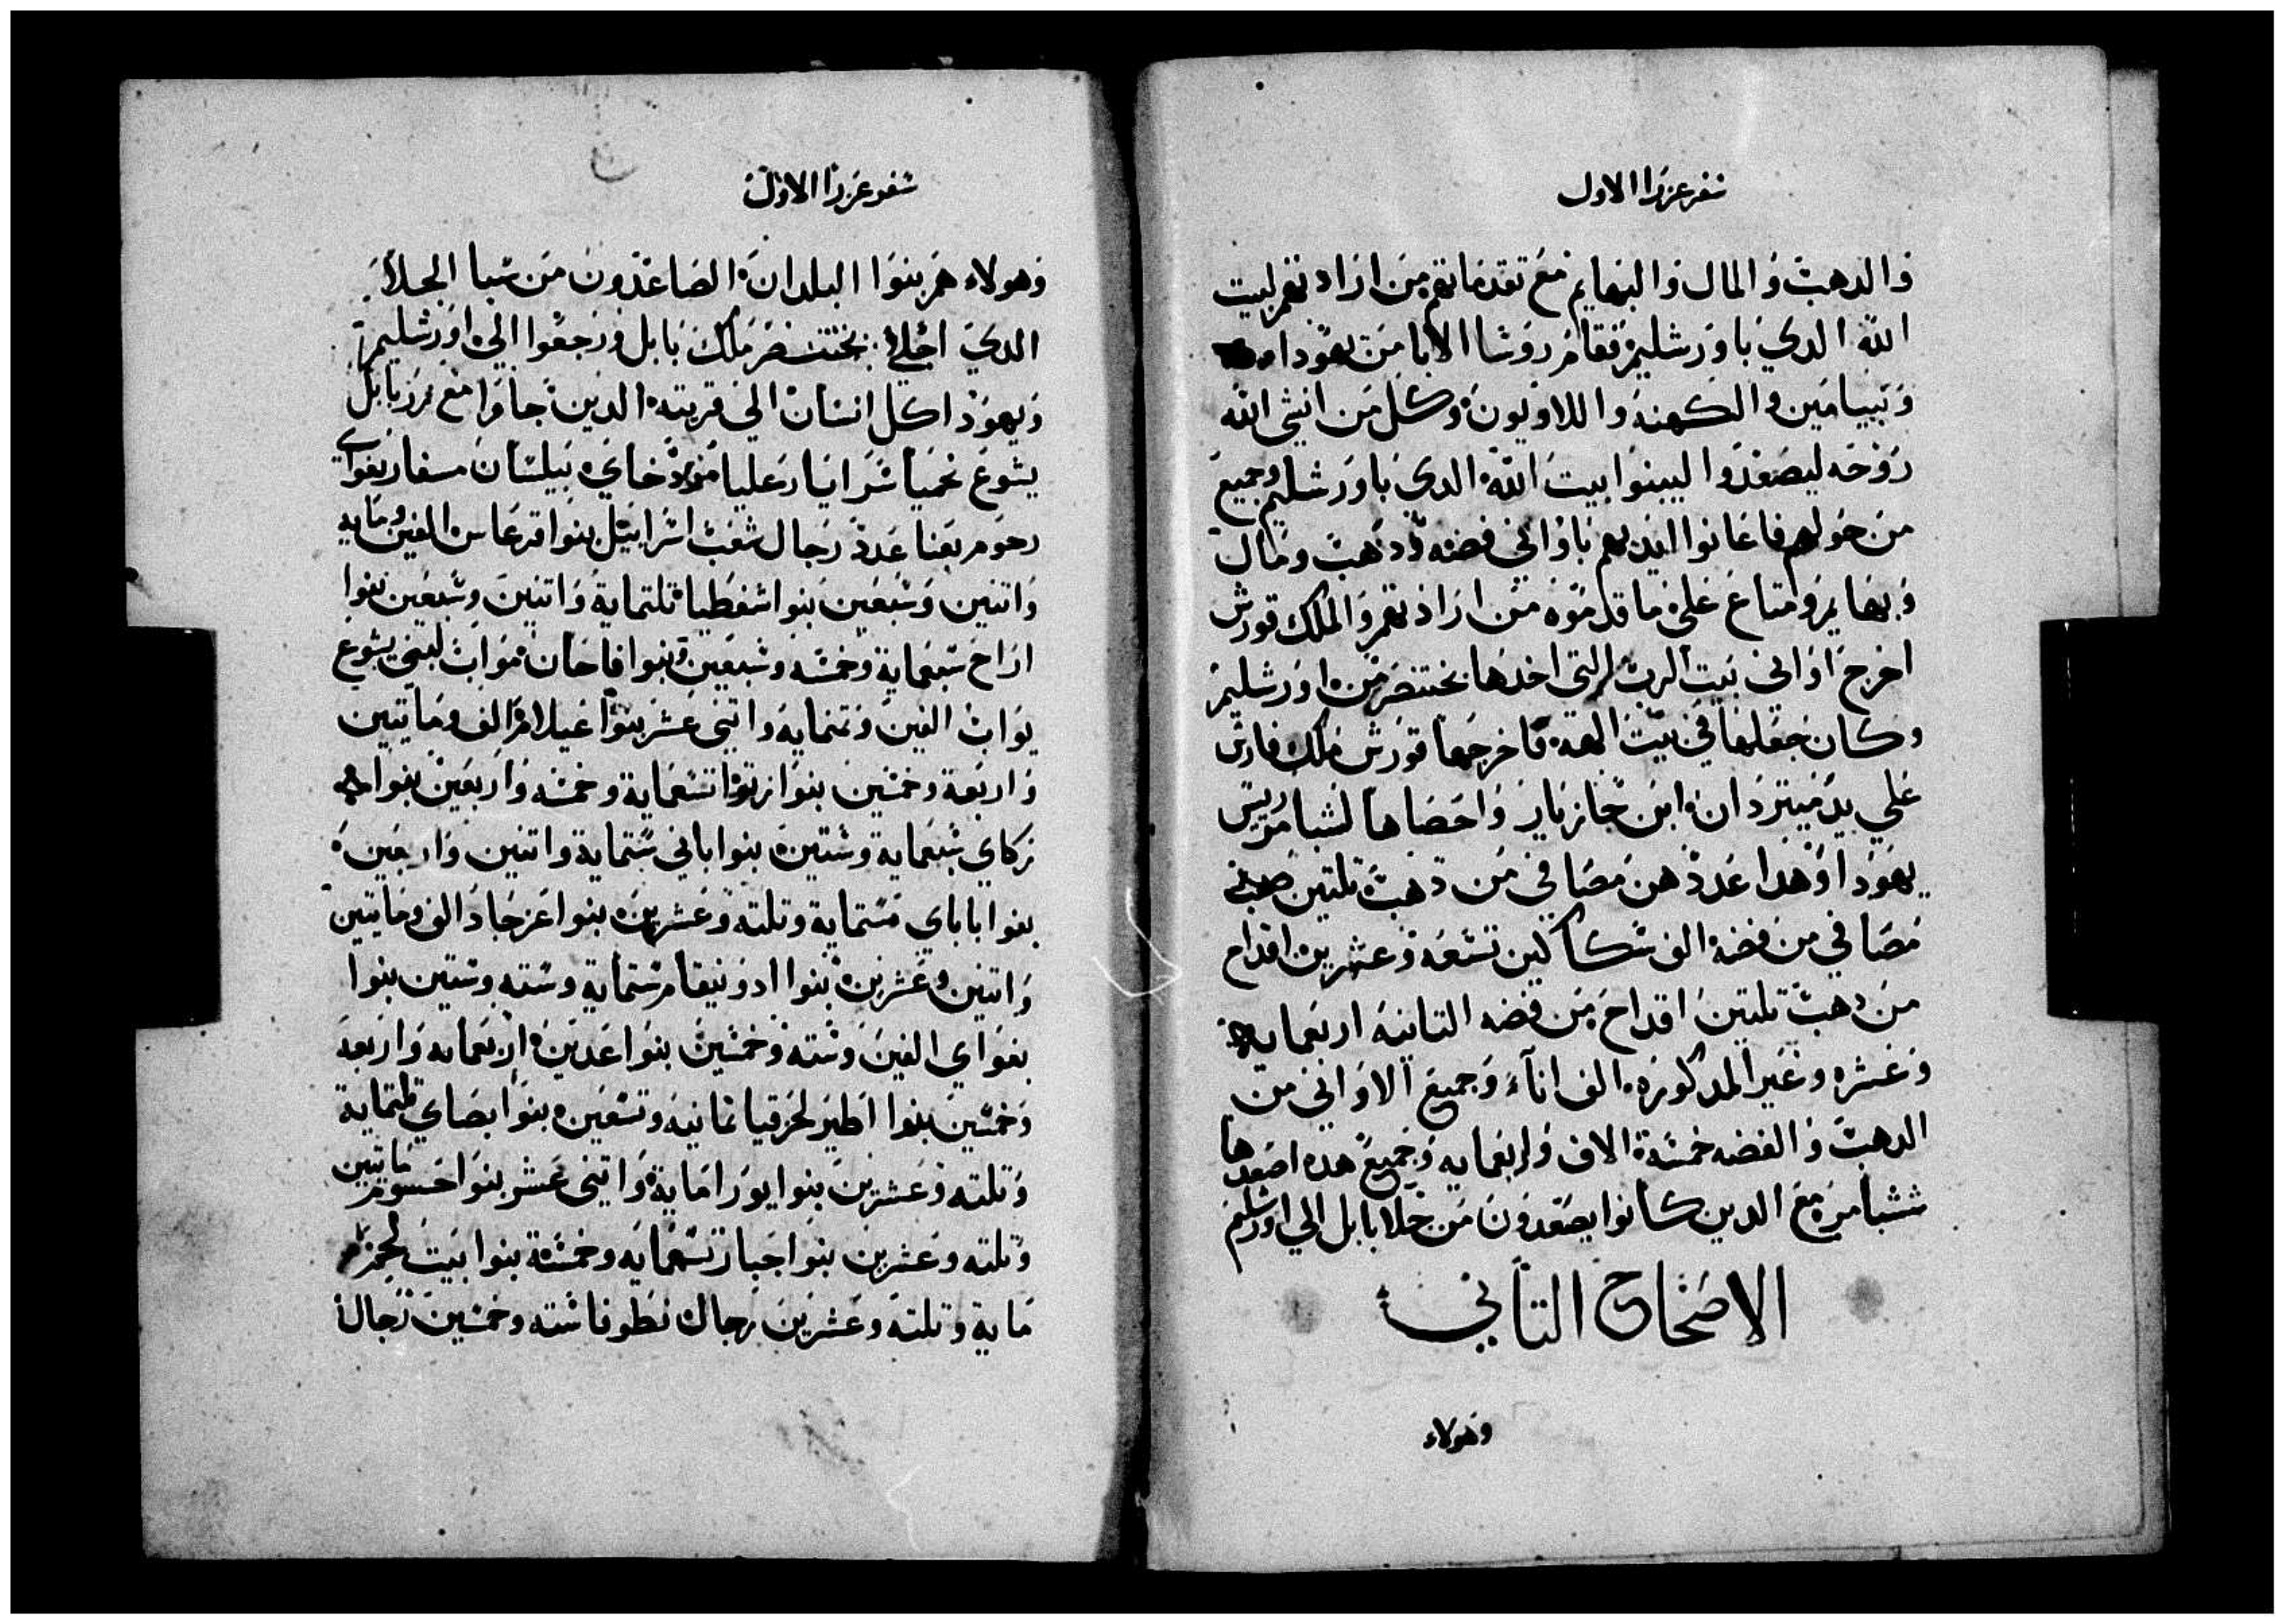 سفر عزرا الاول
والدهب والمال والبهايم مع تقدماتهم من ارادتهم لبيت
الله الدي باورشليم فقام روسا الابا من يهودا
وبنيامين والكهنه واللاويون وكل من انبتى الله
روحه ليصعدوا ليبنوا بيت الله الدي باورشليم وجميع
من حولهم فاعانوا ايديهم باواني فضه ودهب ومال
وبهايم وامتاع على ما قدموه من ارادتهم والملك قورش
اخرج اواني بيت الرب التي اخدها بختنصر من اورشليم
وكان جعلها في بيت الهه فاخرجها قورش ملك فارس
على يد ميتردان ابن جازبار واحصاها لشبامر ريس
يهودا وهدا عددهن مصافي من دهب تلتين
مصافي من فضه الف سكاكين تسعه وعشرين اقداح
من دهب تلتين اقداح من فضه التانيه اربعمايه
وعشره وغير المدكوره الف اناء وجميع الاواني من
الدهب والفضه خمسة الاف واربعمايه وجميع هده اصعدها
شبامر مع الدين كانوا يصعدون من جلا بابل الي اورشليم
الاصحاح التاني
وهولاء
سفر عزرا الاول
وهولاء هم بنوا البلدان الصاعدون من سبا الجلا
الدي اجلا بختنصر ملك بابل ورجعوا الي اورشليم
ويهودا كل انسان الي قريته الدين جاوا مع زربابل
يشوع نحميا سرايا رعليا مردخاي بيلسان مسفار بغواي
رحوم بعنا عدد رجال شعب اسراييل بنوا فرعاس الفين ومايه
واتنين وسبعين بنوا اشفطيا تلتماية واتنين وسبعين بنوا
اراح سبعماية وخمسه وسبعين بنوا فاحات مواب لبني يشوع
يواب الفين وتمنمايه واتني عشر بنوا عيلام الف ومايتين
واربعة وخمسين بنوا زتوا تسعماية وخمسه واربعين بنوا
زكاي سبعماية وستين بنوا باني ستماية واتنين واربعين
بنوا باباي ستماية وتلته وعشرين بنوا عزجاد الف ومايتين
واتنين وعشرين بنوا ادونيقام ستماية وسته وستين بنوا
بغواي الفين وسته وخمسين بنوا عدين اربعمايه واربعة
وخمسين بنوا اطير لحزقيا تمانيه وتسعين بنوا بصاي تلتماية
وتلته وعشرين بنوا يورا ماية واتني عشر بنوا حسوم مايتين
وتلته وعشرين بنوا جبار تسعمايه وخمسة بنوا بيت لحم
ماية وتلتة وعشرين رجال نطوفا سته وخمسين رجال